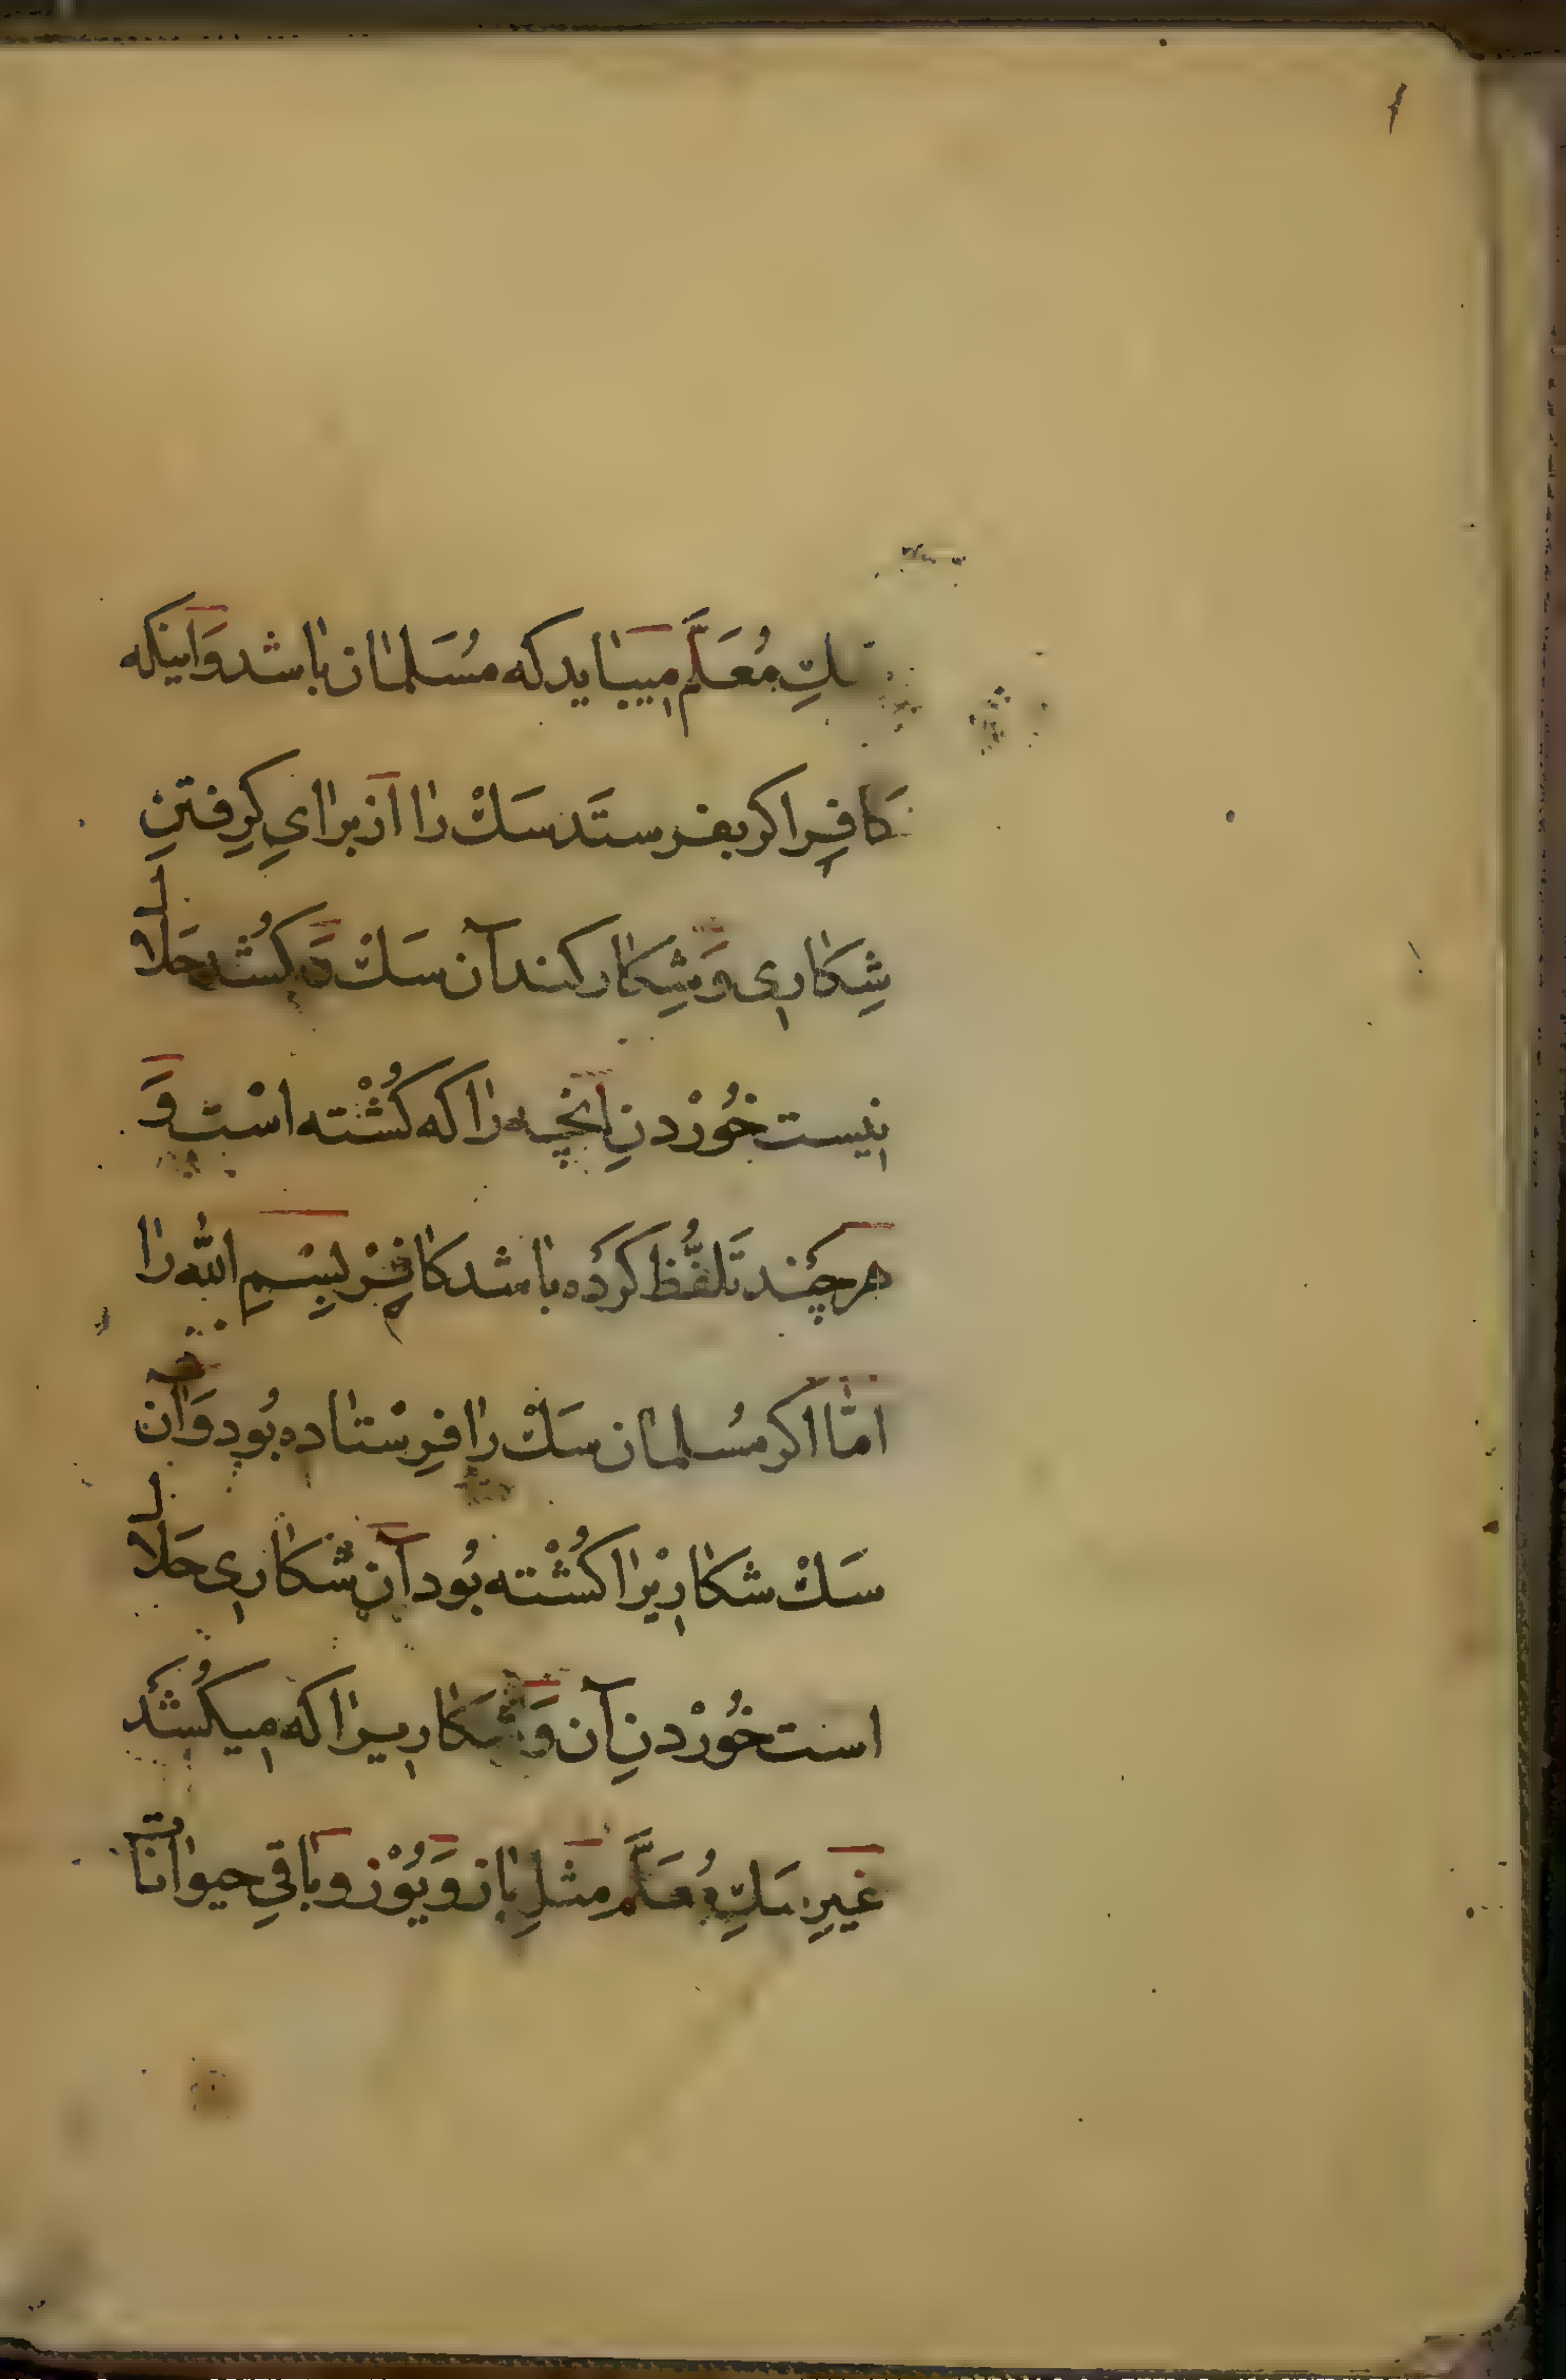 سَكِ مُعَلَّم میباید که مُسَلمان باشد وَاینکه
کافِر اکر بفرستَد سَكْ را از برایِ کرِفتنِ
شِکاری وَشِکار کند آن سَكْ وَکُشد حَلال
نیست خُورْدنِ آنچه را که کُشْته اسْت وَ
هرچَند تَلفُّظ کرْده باشد کافِرْ بِسْمِ اللّه را
امّا اکر مسُلمان سَكْ را فرِسْتاده بُود وَآن
سَكْ شکاریْرا کُشْته بُود آن شکاری حَلال
است خُورْدنِ آن وَشِکاریرا که میکُشَد
غیرِ سَكِ مُعَلَّم مِثلِ باز وَیُوْز وَباقیِ حیوانات